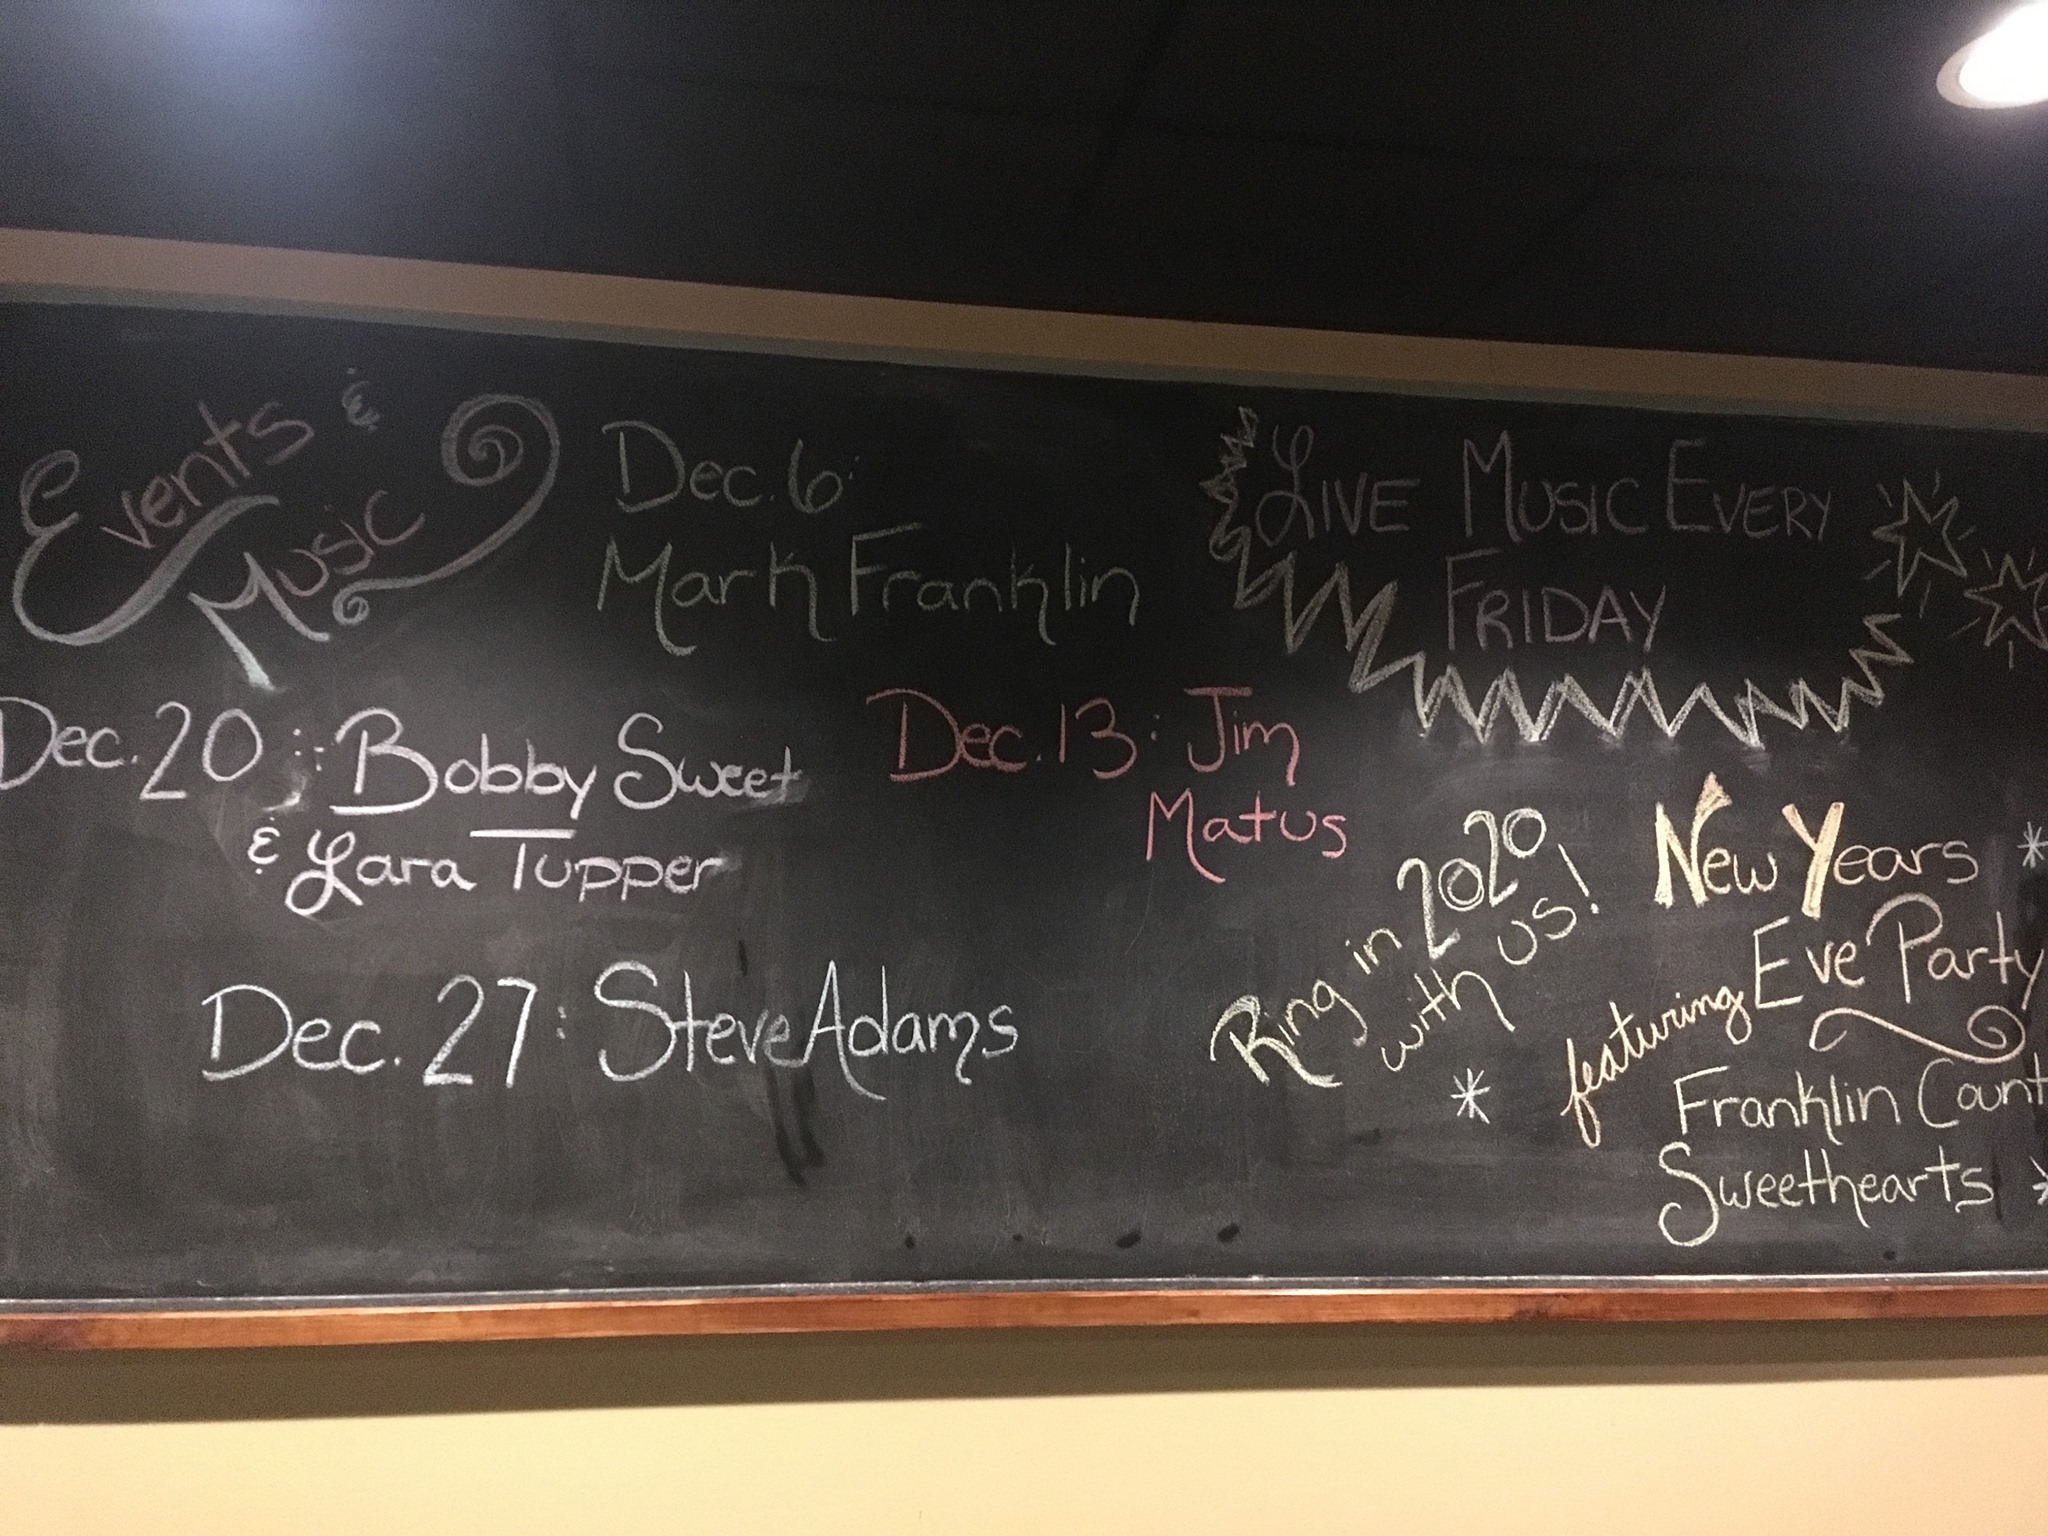 Events &
Music
Dec. 6:
Mark Franklin
LIVE MUSIC EVERY
FRIDAY
Dec. 20 : Bobby Sweet
& Lara Tupper
Dec. 13 : Jim
Matus
Dec. 27 : Steve Adams
Ring in 2020
with us!
New Years
Eve Party
featuring
Franklin Count
Sweethearts